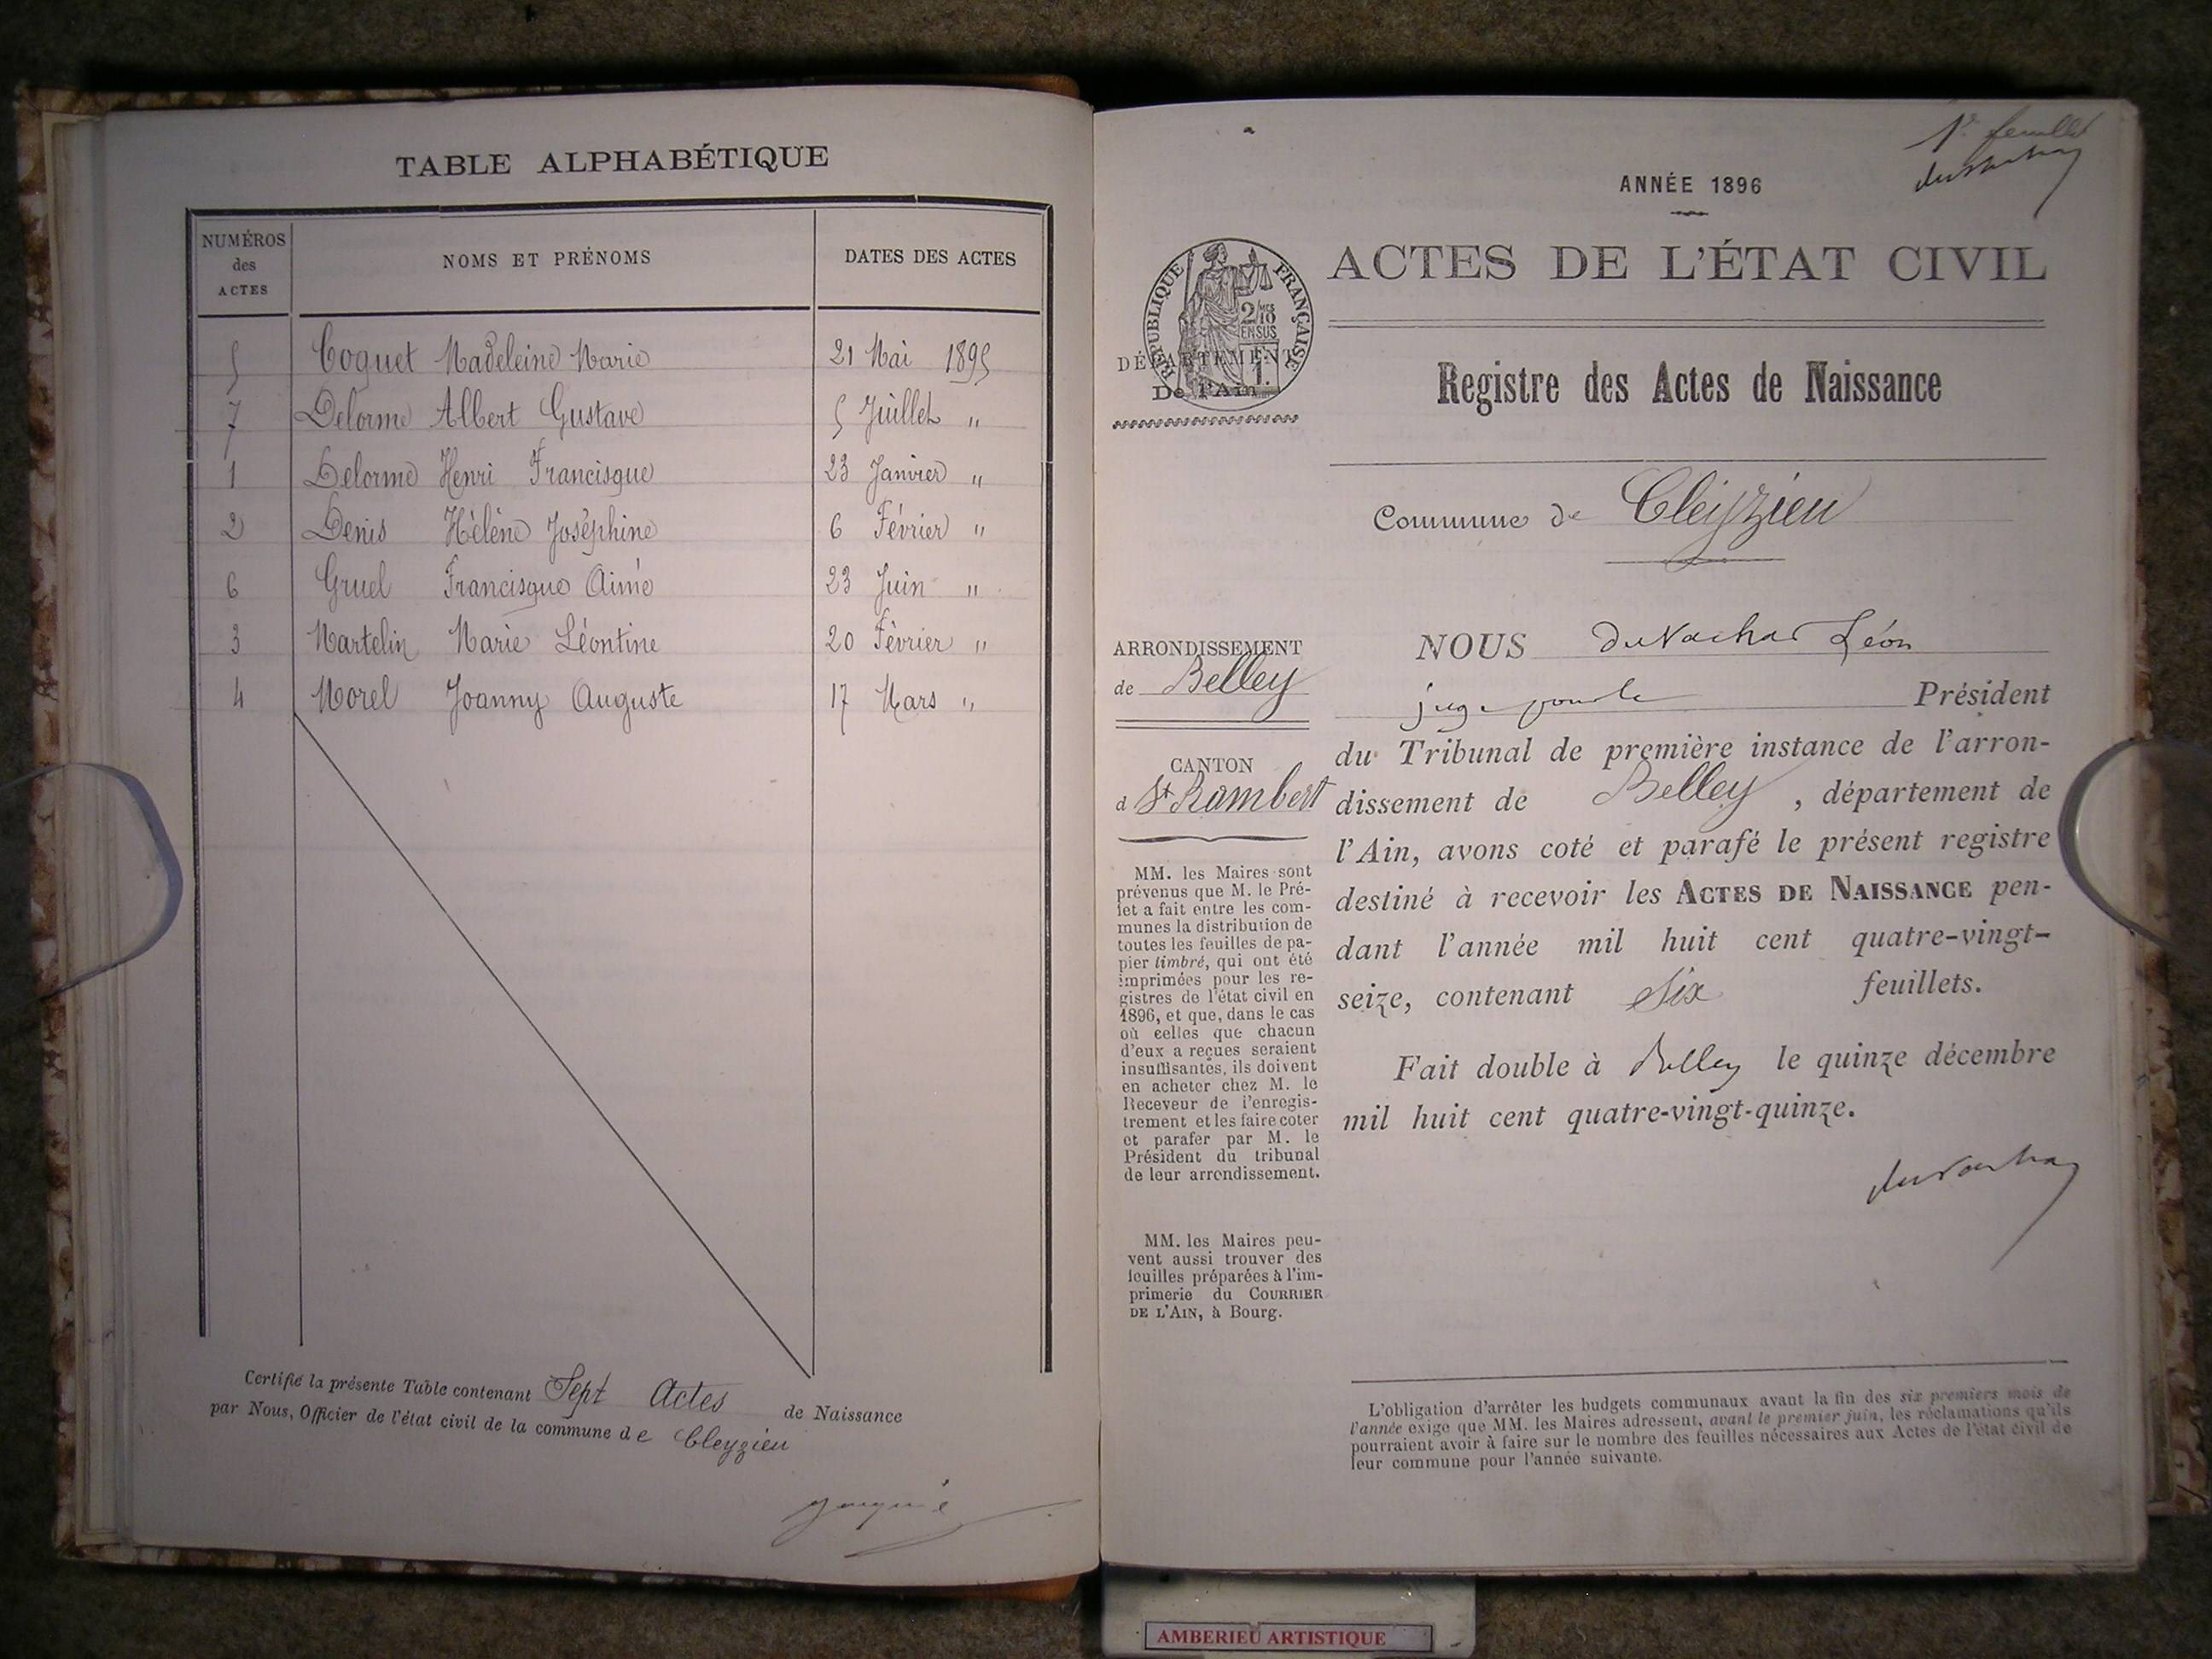 TABLE ALPHABÉTIQUE
NUMÉROS des ACTES NOMS ET PRÉNOMS DATES DES ACTES
5 Coquet Madeleine Marie 21 Mai 1895
7 Delorme Albert Gustave 5 Juillet "
1 Delorme Henri Francisque 23 Janvier "
2 Denis Hélène Joséphine 6 Février "
6 Gruel Francisque Aimé 23 Juin "
3 Martelin Marie Léontine 20 Février "
4 Morel Joanny Auguste 17 Mars "
Certifié la présente Table contenant Sept Actes de Naissance
par Nous, Officier de l'état civil de la commune de Cleyzieu
1er feuillet
ANNÉE 1896
RÉPUBLIQUE FRANÇAISE
2/10 EN SUS
DÉPARTEMENT
De l'Ain
ACTES DE L'ÉTAT CIVIL
Registre des Actes de Naissance
Commune de Cleyzieu
ARRONDISSEMENT
de Belley
CANTON
d St Rambert
MM. les Maires sont
prévenus que M. le Pré-
fet a fait entre les com-
munes la distribution de
toutes les feuilles de pa-
pier timbré, qui ont été
imprimées pour les re-
gistres de l'état civil en
1896, et que, dans le cas
où celles que chacun
d'eux a reçues seraient
insuffisantes, ils doivent
en acheter chez M. le
Receveur de l'enregis-
trement et les faire coter
et parafer par M. le
Président du tribunal
de leur arrondissement.
MM. les Maires peu-
vent aussi trouver des
feuilles préparées à l'im-
primerie du COURRIER
DE L'AIN, à Bourg.
NOUS Léon
juge pour le Président
du Tribunal de première instance de l'arron-
dissement de Belley, département de
l'Ain, avons coté et parafé le présent registre
destiné à recevoir les ACTES DE NAISSANCE pen-
dant l'année mil huit cent quatre-vingt-
seize, contenant Six feuillets.
Fait double à Belley le quinze décembre
mil huit cent quatre-vingt-quinze.
L'obligation d'arrêter les budgets communaux avant la fin des six premiers mois de
l'année exige que MM. les Maires adressent, avant le premier juin, les réclamations qu'ils
pourraient avoir à faire sur le nombre des feuilles nécessaires aux Actes de l'état civil de
leur commune pour l'année suivante.
AMBERIEU ARTISTIQUE